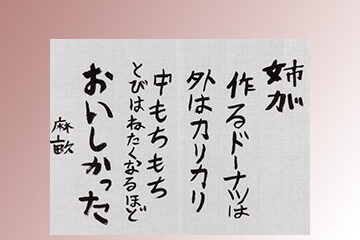 姉が
作るドーナツは
外はカリカリ
中もちもち
とびはねたくなるほど
おいしかった
麻畝